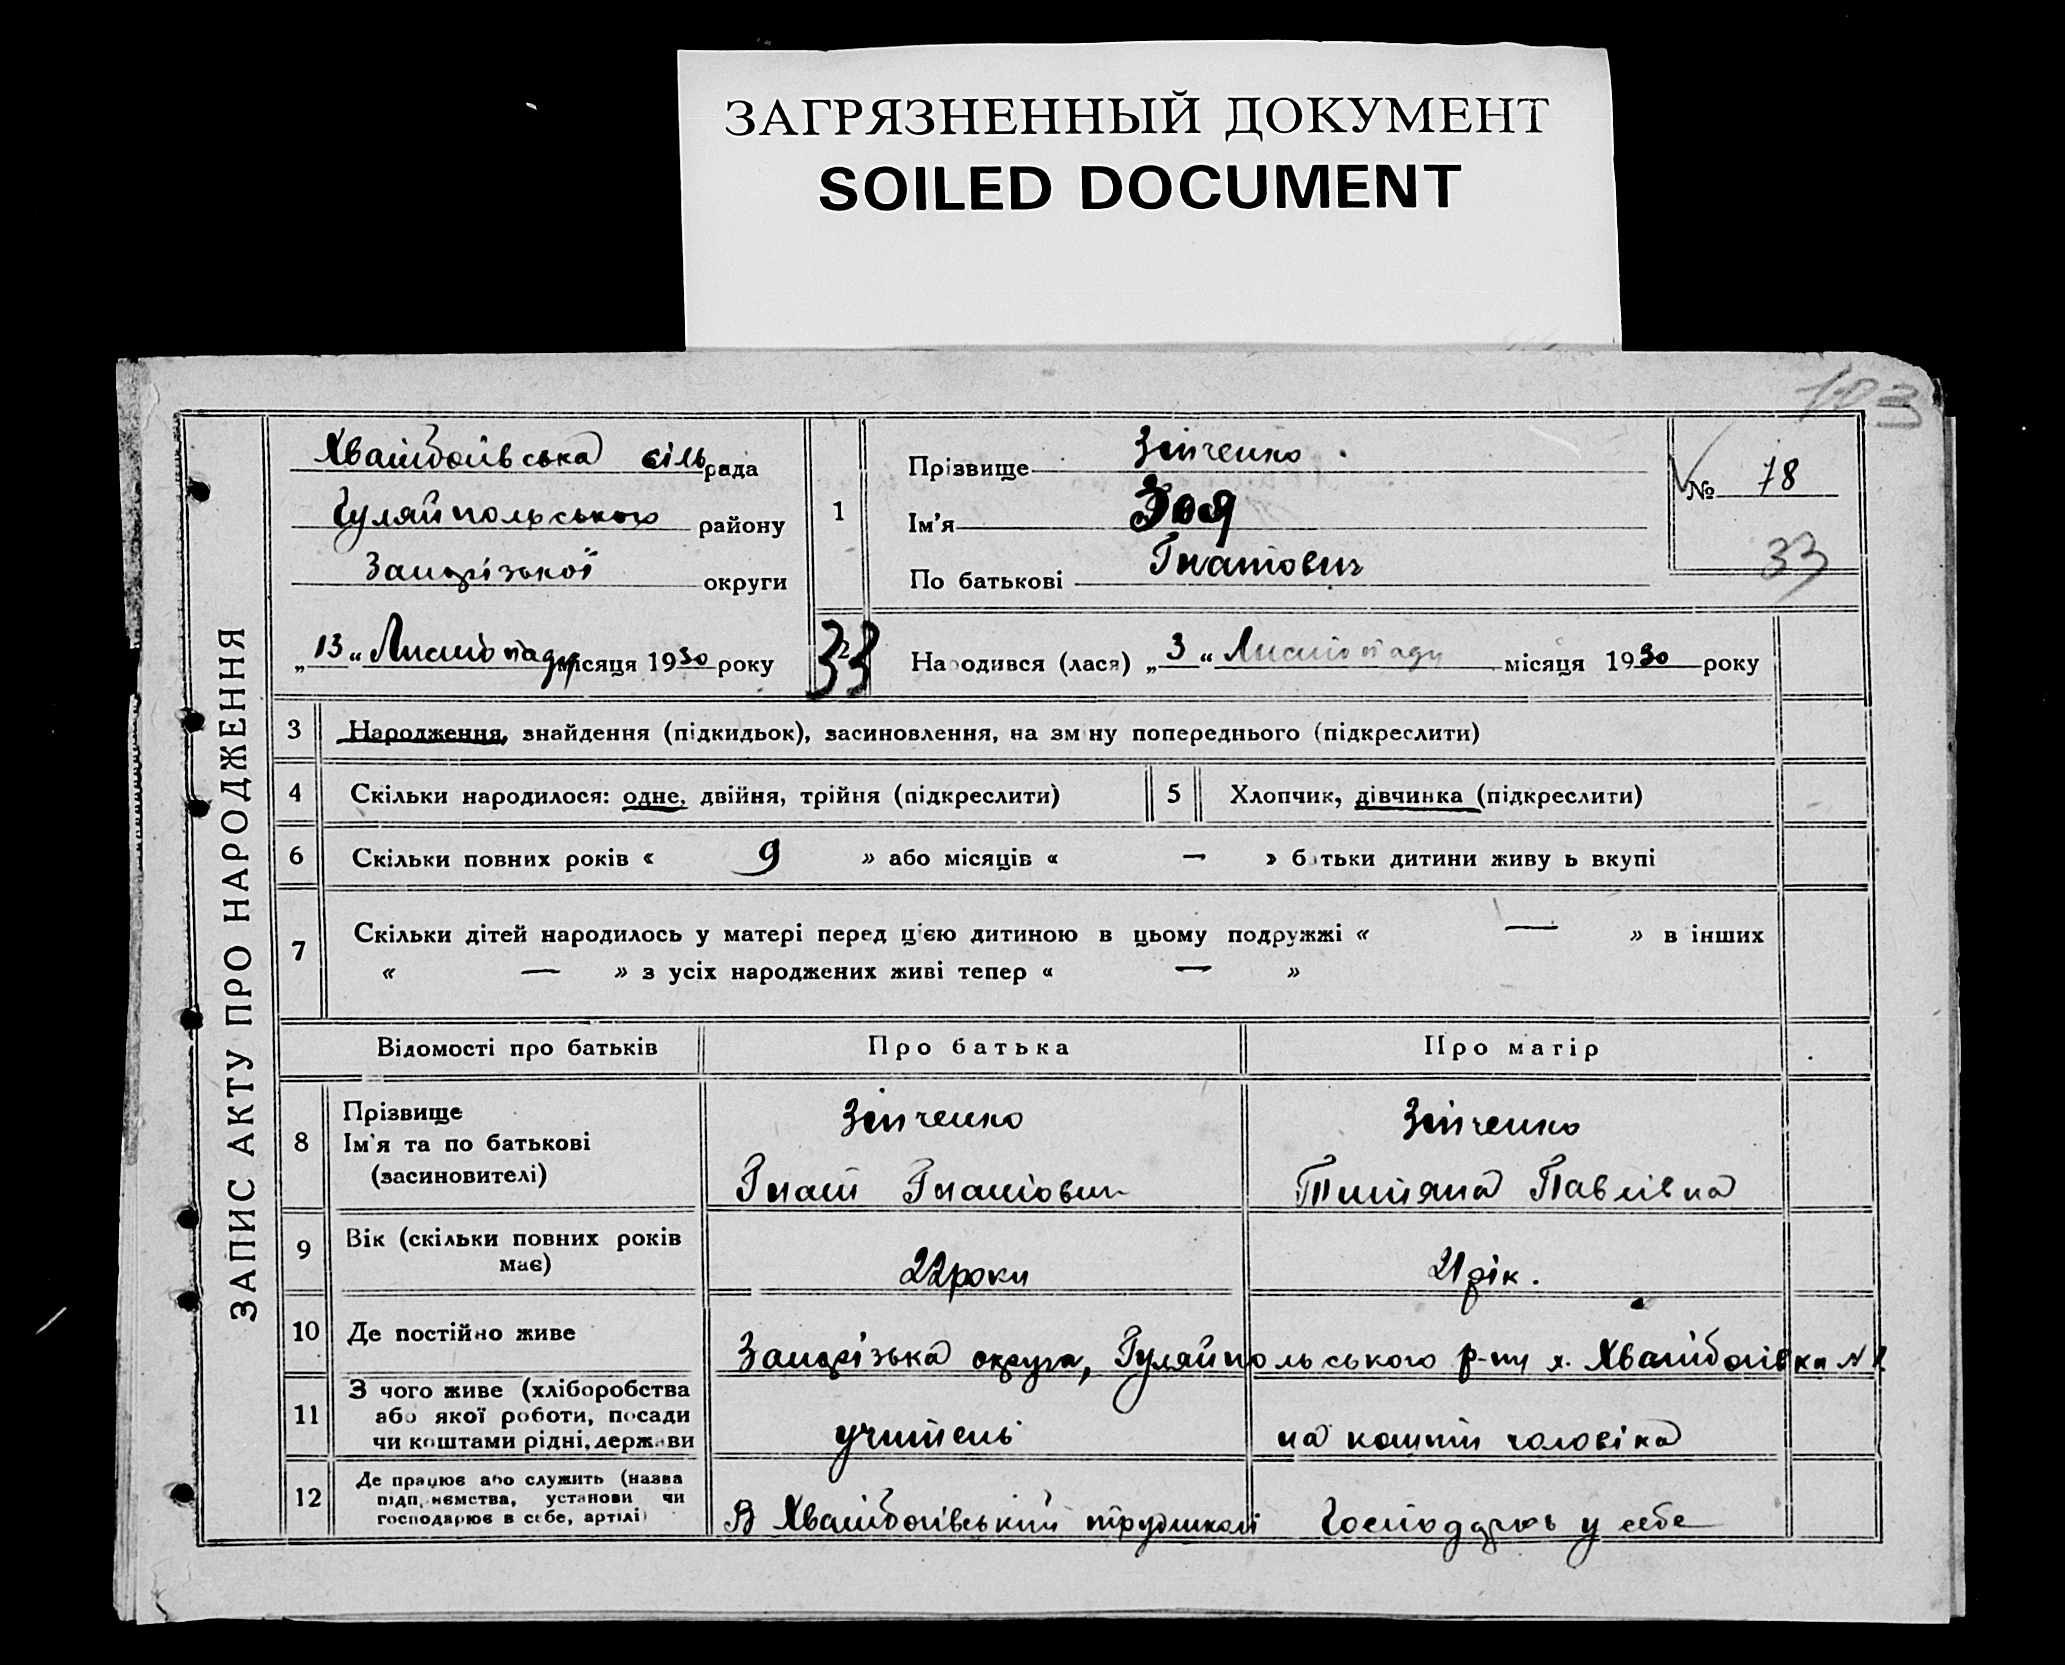 ЗАГРЯЗНЕННЫЙ ДОКУМЕНТ
SOILED DOCUMENT
103
ЗАПИС АКТУ ПРО НАРОДЖЕННЯ
Хвайбоївська сільрада
Гуляйпольського району
Запорізької округи
„13“ Листопаду місяця 1930 року
1
Прізвище Зінченко
Ім'я Зоя
По батькові Гнатович
№ 78
33
33
2
Народився (лася) „3“ Листопаду місяця 1930 року
3 Народження, знайдення (підкидьок), засиновлення, на зміну попереднього (підкреслити)
4 Скільки народилося: одне, двійня, трійня (підкреслити)
5 Хлопчик, дівчинка (підкреслити)
6 Скільки повних років « 9 » або місяців « — » батьки дитини живуть вкупі
7 Скільки дітей народилось у матері перед цією дитиною в цьому подружжі « — » в інших
« — » з усіх народжених живі тепер « — »
Відомості про батьків Про батька Про матір
8 Прізвище
Ім'я та по батькові
(засиновителі)
Зінченко
Гнат Гнатович
Зінченко
Титяна Павлівна
9 Вік (скільки повних років
має)
22 роки
21 рік.
10 Де постійно живе
Запорізька округа, Гуляйпольського р-ну х. Хвайбоївка №
11 З чого живе (хліборобства
або якої роботи, посади
чи коштами рідні, держави
учитель
на кошти чоловіка
12 Де працює або служить (назва
підприємства, установи чи
господарює в себе, артілі)
В Хвайбоївській трудшколі
Господарює у себе